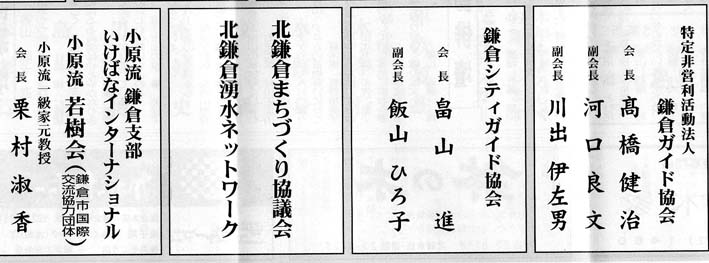 特定非営利活動法人
鎌倉ガイド協会
会長 髙橋健治
副会長 河口良文
副会長 川出伊左男
鎌倉シティガイド協会
会長 畠山進
副会長 飯山ひろ子
北鎌倉まちづくり協議会
北鎌倉湧水ネットワーク
小原流 鎌倉支部
いけばなインターナショナル
小原流 若樹会(鎌倉市国際交流協力団体)
小原流一級家元教授
会長 栗村淑香